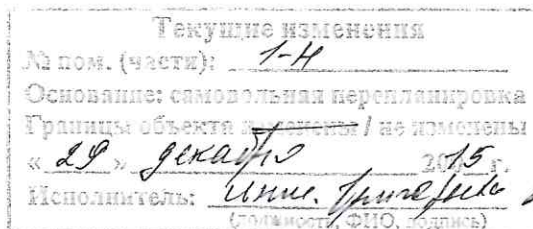 Текущие изменения
№ пом. (части): 1-Н
Основание: самовольная перепланировка
Границы объекта изменены / не изменены
« 29 » декабря 2015 г.
Исполнитель: инж.
(должность, ФИО, подпись)